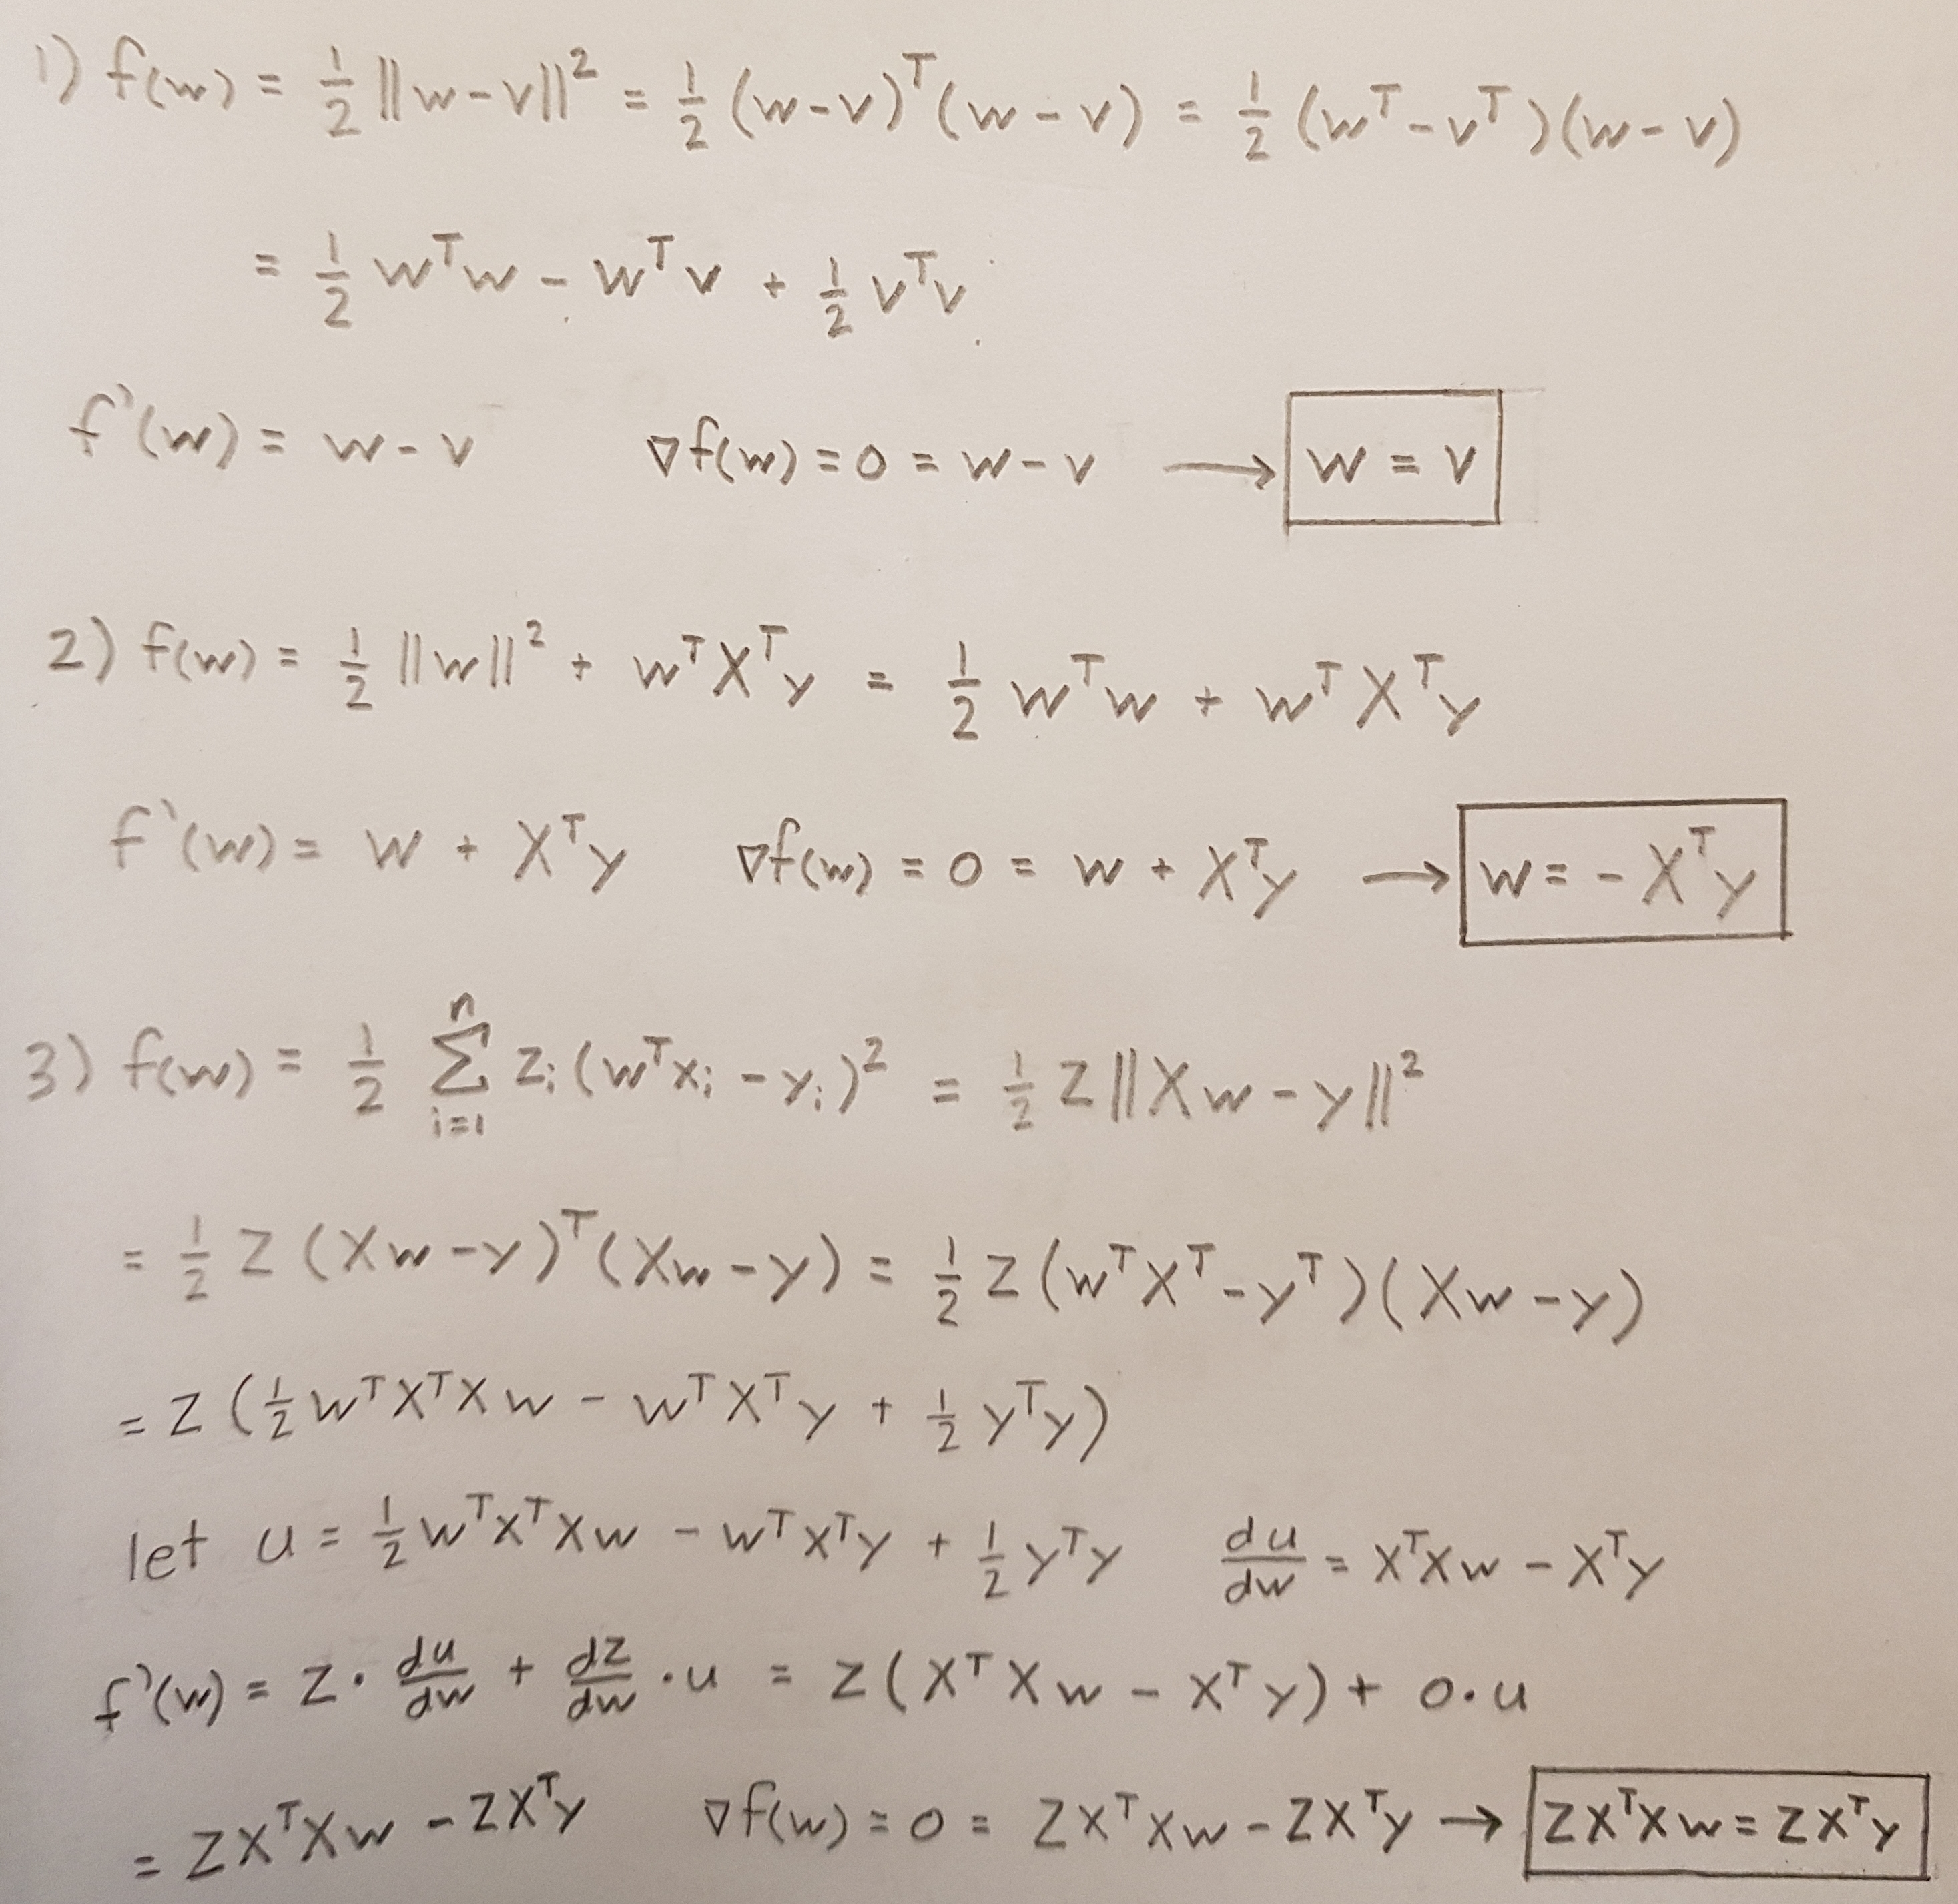 1) f(w) = 1/2 ||w-v||² = 1/2 (w-v)ᵀ(w-v) = 1/2 (wᵀ-vᵀ)(w-v)
= 1/2 wᵀw - wᵀv + 1/2 vᵀv
f'(w) = w-v ∇f(w) = 0 = w-v → w = v
2) f(w) = 1/2 ||w||² + wᵀXᵀy = 1/2 wᵀw + wᵀXᵀy
f'(w) = w + Xᵀy ∇f(w) = 0 = w + Xᵀy → w = -Xᵀy
3) f(w) = 1/2 Σ_{i=1}^{n} zᵢ(wᵀxᵢ - yᵢ)² = 1/2 Z||Xw-y||²
= 1/2 Z(Xw-y)ᵀ(Xw-y) = 1/2 Z(wᵀXᵀ-yᵀ)(Xw-y)
= Z(1/2 wᵀXᵀXw - wᵀXᵀy + 1/2 yᵀy)
let u = 1/2 wᵀXᵀXw - wᵀXᵀy + 1/2 yᵀy du/dw = XᵀXw - Xᵀy
f'(w) = Z · du/dw + dZ/dw · u = Z(XᵀXw - Xᵀy) + 0·u
= ZXᵀXw - ZXᵀy ∇f(w) = 0 = ZXᵀXw - ZXᵀy → ZXᵀXw = ZXᵀy